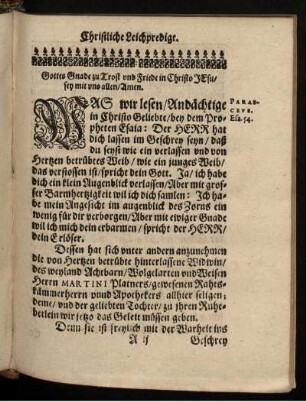 Christliche Leichpredigt.
Gottes Gnade zu Trost und Friede in Christo JEsu/
sey mit uns allen/Amen.
WAS wir lesen/Andächtige
in Christo Geliebte/bey dem Pro-
pheten Esaia: Der HERR hat
dich lassen im Geschrey seyn/daß
du seyst wie ein verlassen und von
Hertzen betrübtes Weib/wie ein junges Weib/
das verstossen ist/spricht dein Gott. Ja/ich habe
dich ein klein Augenblick verlassen/Aber mit gros-
ser Barmhertzigkeit wil ich dich samlen: Ich ha-
be mein Angesicht im augenblick des Zorns ein
wenig für dir verborgen/Aber mit ewiger Gnade
wil ich mich dein erbarmen/spricht der HERR/
dein Erlöser.
PARAS-
CEVE.
Esa. 54.
Dessen hat sich unter andern anzunehmen
die von Hertzen betrübte hinterlassene Widtwin/
des weyland Achtbarn/Wolgelarten und Weisen
Herrn MARTINI Platners/gewesenen Rahts-
kämmerherrn vnnd Apothekers allhier seligen:
deme/und der geliebten Tochter/zu ihren Ruhe-
betlein wir jetzo das Geleit müssen geben.
Denn sie ist freylich mit der Warheit ins
A ij
Geschrey